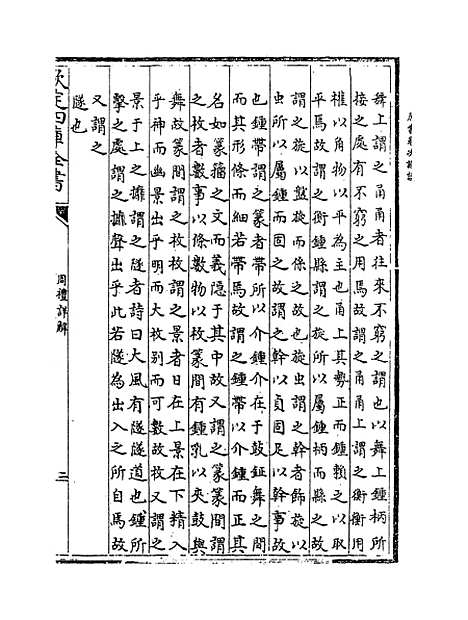 舞上謂之甬甬者往來不窮之謂也以舞上鍾柄所
接之處有不窮之用焉故謂之甬甬上謂之衡衡用
權以角物以平為主也甬上其勢正而鍾賴之以取
平焉故謂之衡鍾縣謂之旋所以屬鍾而縣之故
謂之旋以盤旋而條之故也旋蟲謂之幹者飾旋以
蟲所以屬鍾而固之故謂之幹以貞固足以幹事故
也鍾帶謂之篆者帶所以介鍾介在于鼓鉦舞之間
而其形條而細若帶焉故謂之鍾帶以介鍾而正其
名如篆籀之文而義隱于其中故又謂之篆篆間謂
之枚者數事以條數物以枚篆間有鍾乳以夾鼓與
舞故篆間謂之枚枚謂之景者日在上景在下精入
乎神而幽景出乎明而大枚别而可數故枚又謂之
景于上之攠謂之隧者詩曰大風有隧隧道也鍾所
擊之處謂之攠聲出乎此若隧為出入之所自焉故
又謂之
隧也
欽定四庫全書
周禮詳解
三